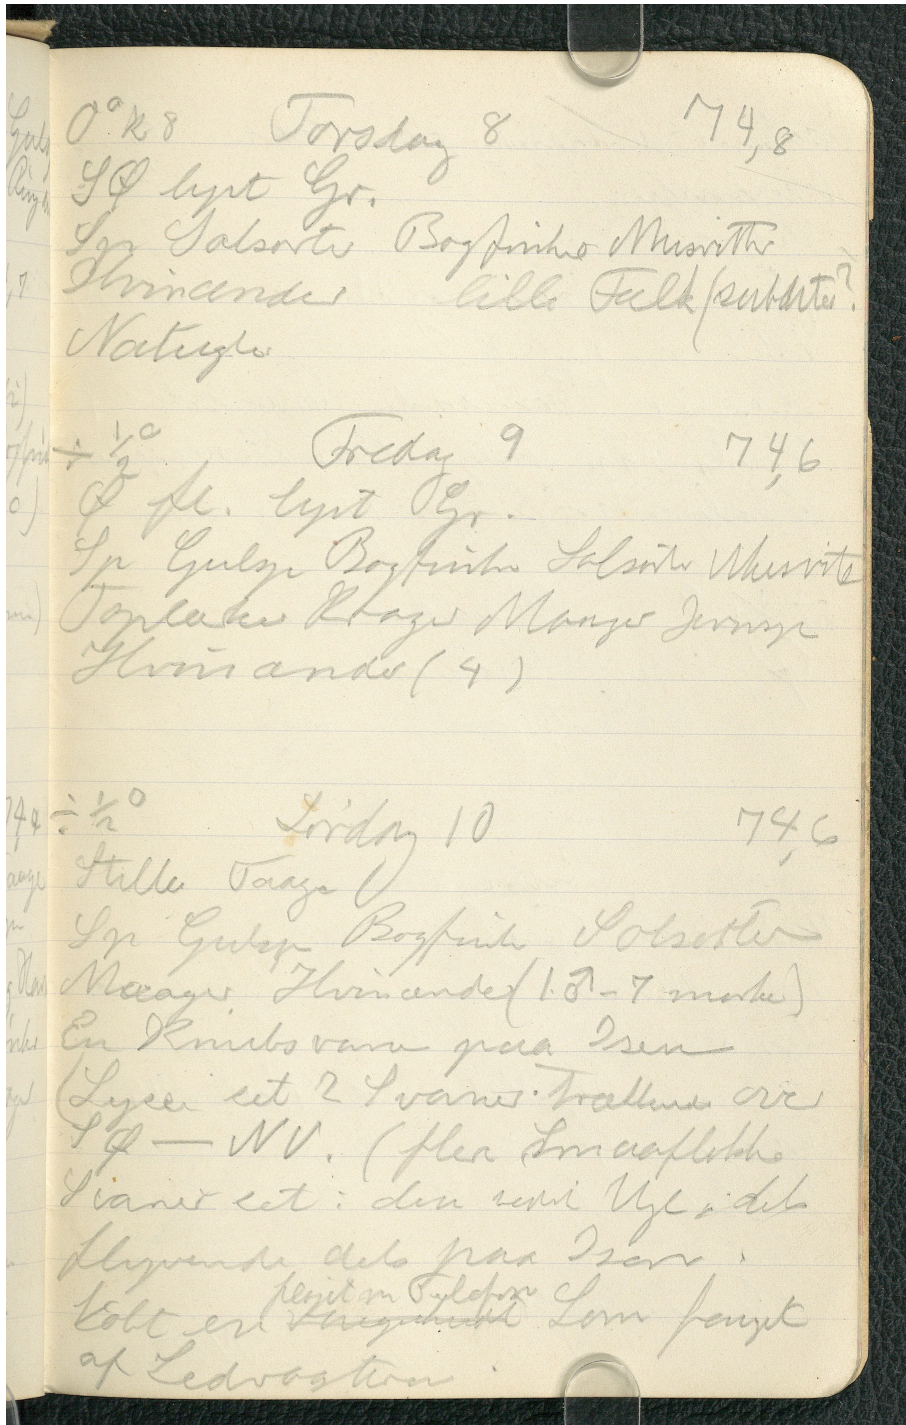 0° K 8 Torsdag 8 74,8
SØ lyst Gr.
Sp Solsorte Bogfinke Musvitte
Hvinænder lille Falk (
Natugle
÷ ½° Fredag 9 74,6
Ø fl. lyst Gr.
Sp Gulsp Bogfinke Solsorte Musvitte
Toplærke Krager Maager Jernsp
Hvinænder (4)
÷ ½° Lördag 10 74,6
Stille Taage
Sp Gulsp Bogfinke Solsorter
Maager Hvinænder (1 ♂ - 7 mørke)
En Knubsvane paa Isen
( set 2 Svaner over
SØ — NV. (flere Smaaflokke
Svaner set i den Uge, dels
flyvende dels paa Isen.
Købt en Lom fanget
af Ledvogteren